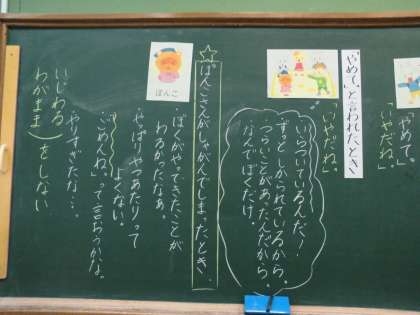 「やめて」
「いやだね。」
「やめて」と言われたとき
「いやだね。」
いらついているんだ！
ずっとしかられているから。
つらいことがあったんだから。
なんでぼくだけ。
☆ぽんこさんがしゃがんでしまったとき
ぽんこ
ぼくがやってきたことが
わるかったなぁ。
やっぱりやつあたりって
よくない。
「ごめんね。」って言おうかな。
やりすぎたな…。
いじわる
わがまま
をしない